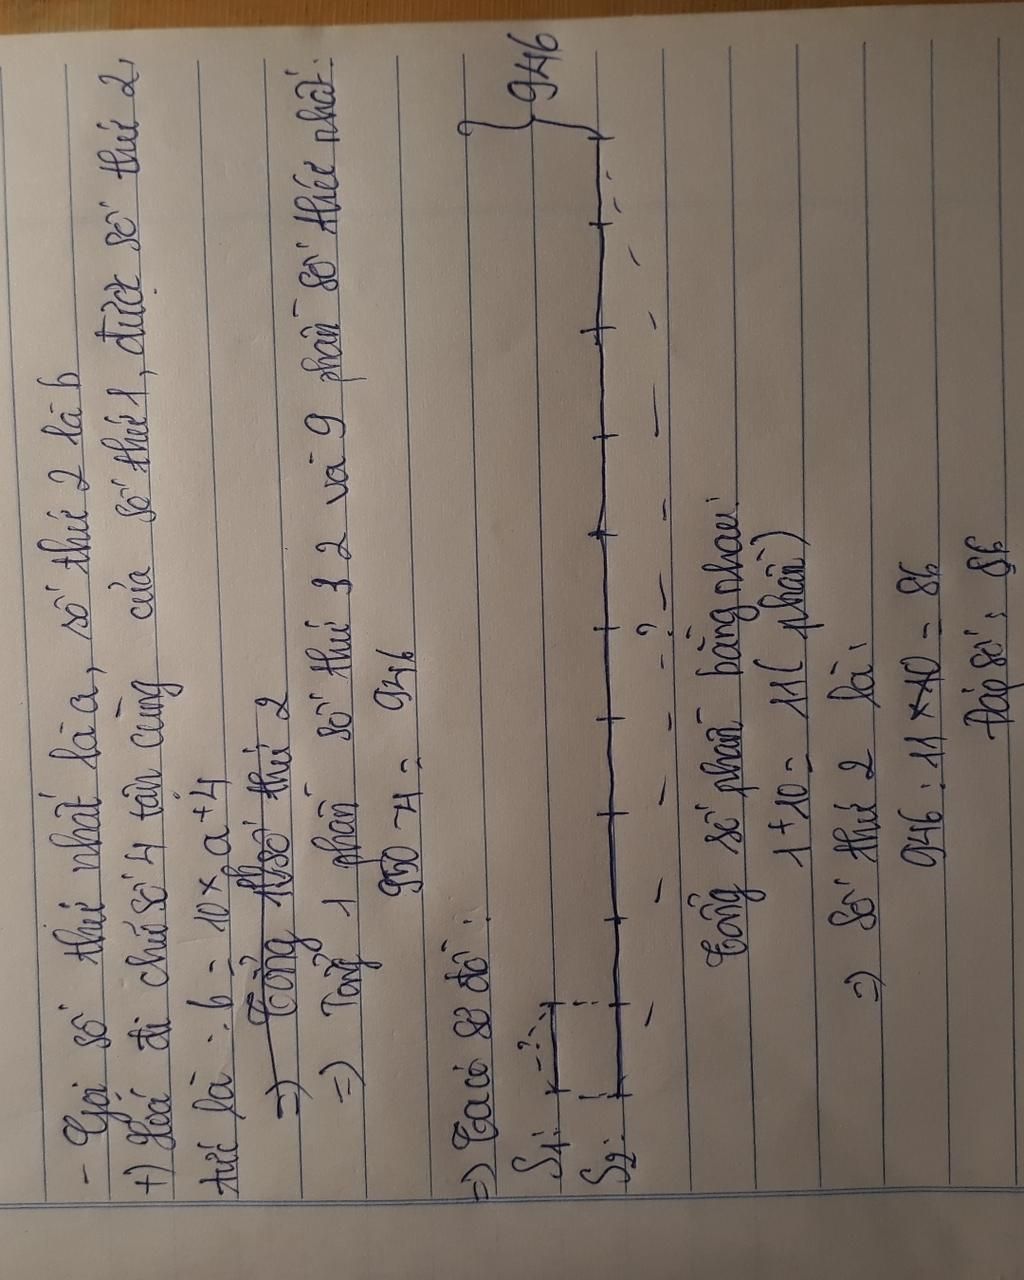 - Gọi số thứ nhất là a, số thứ 2 là b
+) Xoá đi chữ số 4 tận cùng của số thứ 1, được số thứ 2,
tức là : b = 10 x a + 4
=) Tổng số thứ 2
=) Tổng 1 phần số thứ 2 và 9 phần số thứ nhất:
950 - 4 = 946
=) Ta có sơ đồ :
S1: ?
946
S2: ?
Tổng số phần bằng nhau:
1 + 10 = 11 ( phần )
=) Số thứ 2 là:
946 : 11 x 10 = 86
Đáp số : 86